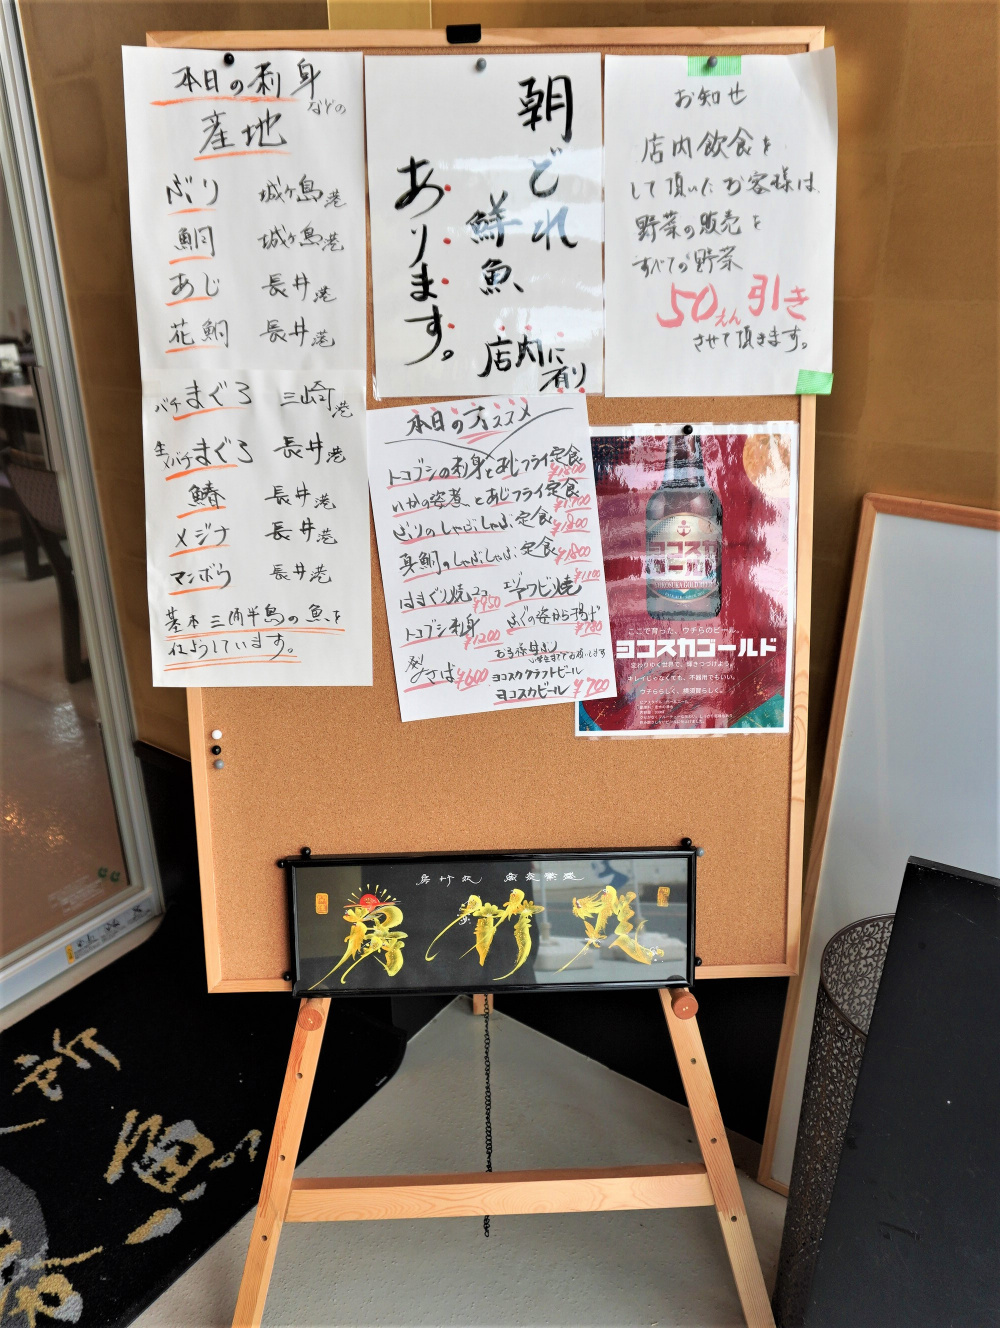 本日の刺身
などの
産地
ぶり 城ヶ島港
鯛 城ヶ島港
あじ 長井港
花鯛 長井港
バチまぐろ 三崎港
生メバチまぐろ 長井港
鰆 長井港
メジナ 長井港
マンボウ 長井港
基本三浦半島の魚を
仕ようしています。
朝どれ
鮮魚、
あります。
店内に
有り
お知せ
店内飲食を
して頂いたお客様は、
野菜の販売を
すべての野菜
50えん引き
させて頂きます。
本日のオススメ
トコブシの刺身とあじフライ定食 ¥1500
いかの姿煮とあじフライ定食 ¥1700
ぶりのしゃぶしゃぶ定食 ¥1800
真鯛のしゃぶしゃぶ定食 ¥1800
はまぐり焼2コ ¥950
エゾアワビ焼 ¥1100
トコブシ刺身 ¥1200
ふぐの姿から揚げ ¥780
さば ¥600
ヨコスカクラフトビール
ヨコスカビール ¥700
ここで育った、ウチらのビール。
ヨコスカゴールド
変わりゆく世界で、輝きつづけよう。
キレイじゃなくても、不器用でもいい。
ウチららしく、横須賀らしく。
房竹丸 商売繁盛
房竹丸